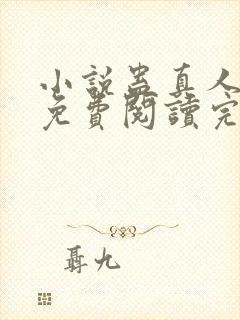 小說蛊真人
免費閱讀完
聶九